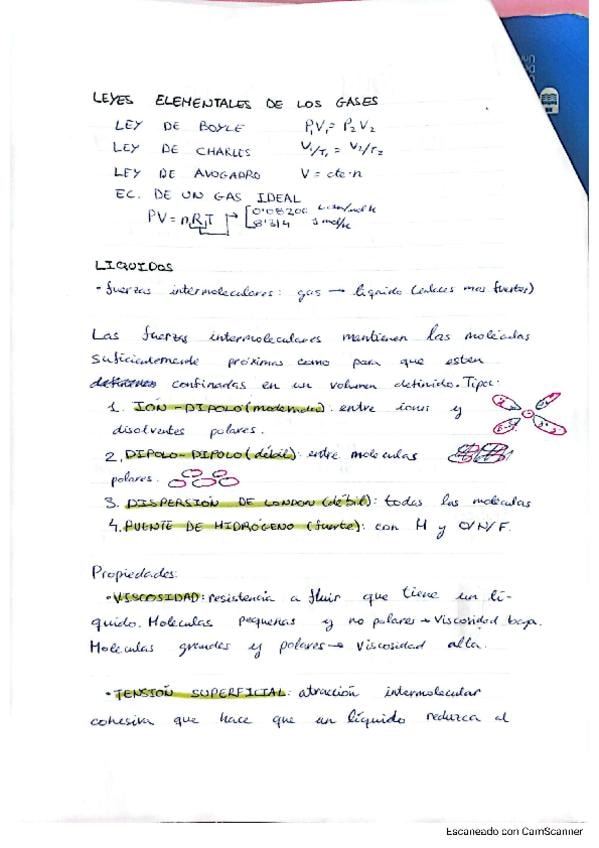 LEYES ELEMENTALES DE LOS GASES
LEY DE BOYLE P₁V₁ = P₂V₂
LEY DE CHARLES V₁/T₁ = V₂/T₂
LEY DE AVOGADRO V = cte·n
EC. DE UN GAS IDEAL
PV = nRT → [0'08206
8'314 J mol/K
LIQUIDOS
- fuerzas intermoleculares: gas → líquido (enlaces mas fuertes)
Las fuerzas intermoleculares mantienen las moléculas
suficientemente próximas como para que esten
confinadas en un volumen definido. Tipos:
1. IÓN-DIPOLO (moderado): entre iones y
disolventes polares.
2. DIPOLO-DIPOLO (débil): entre moleculas
polares.
3. DISPERSIÓN DE LONDON (débil): todas las moléculas
4. PUENTE DE HIDRÓGENO (fuerte): con H y O/N/F.
Propiedades:
·VISCOSIDAD: resistencia a fluir que tiene un lí-
quido. Moleculas pequeñas y no polares → Viscosidad baja.
Moléculas grandes y polares → Viscosidad alta.
·TENSIÓN SUPERFICIAL: atracción intermolecular
cohesiva que hace que un líquido reduzca al
Escaneado con CamScanner